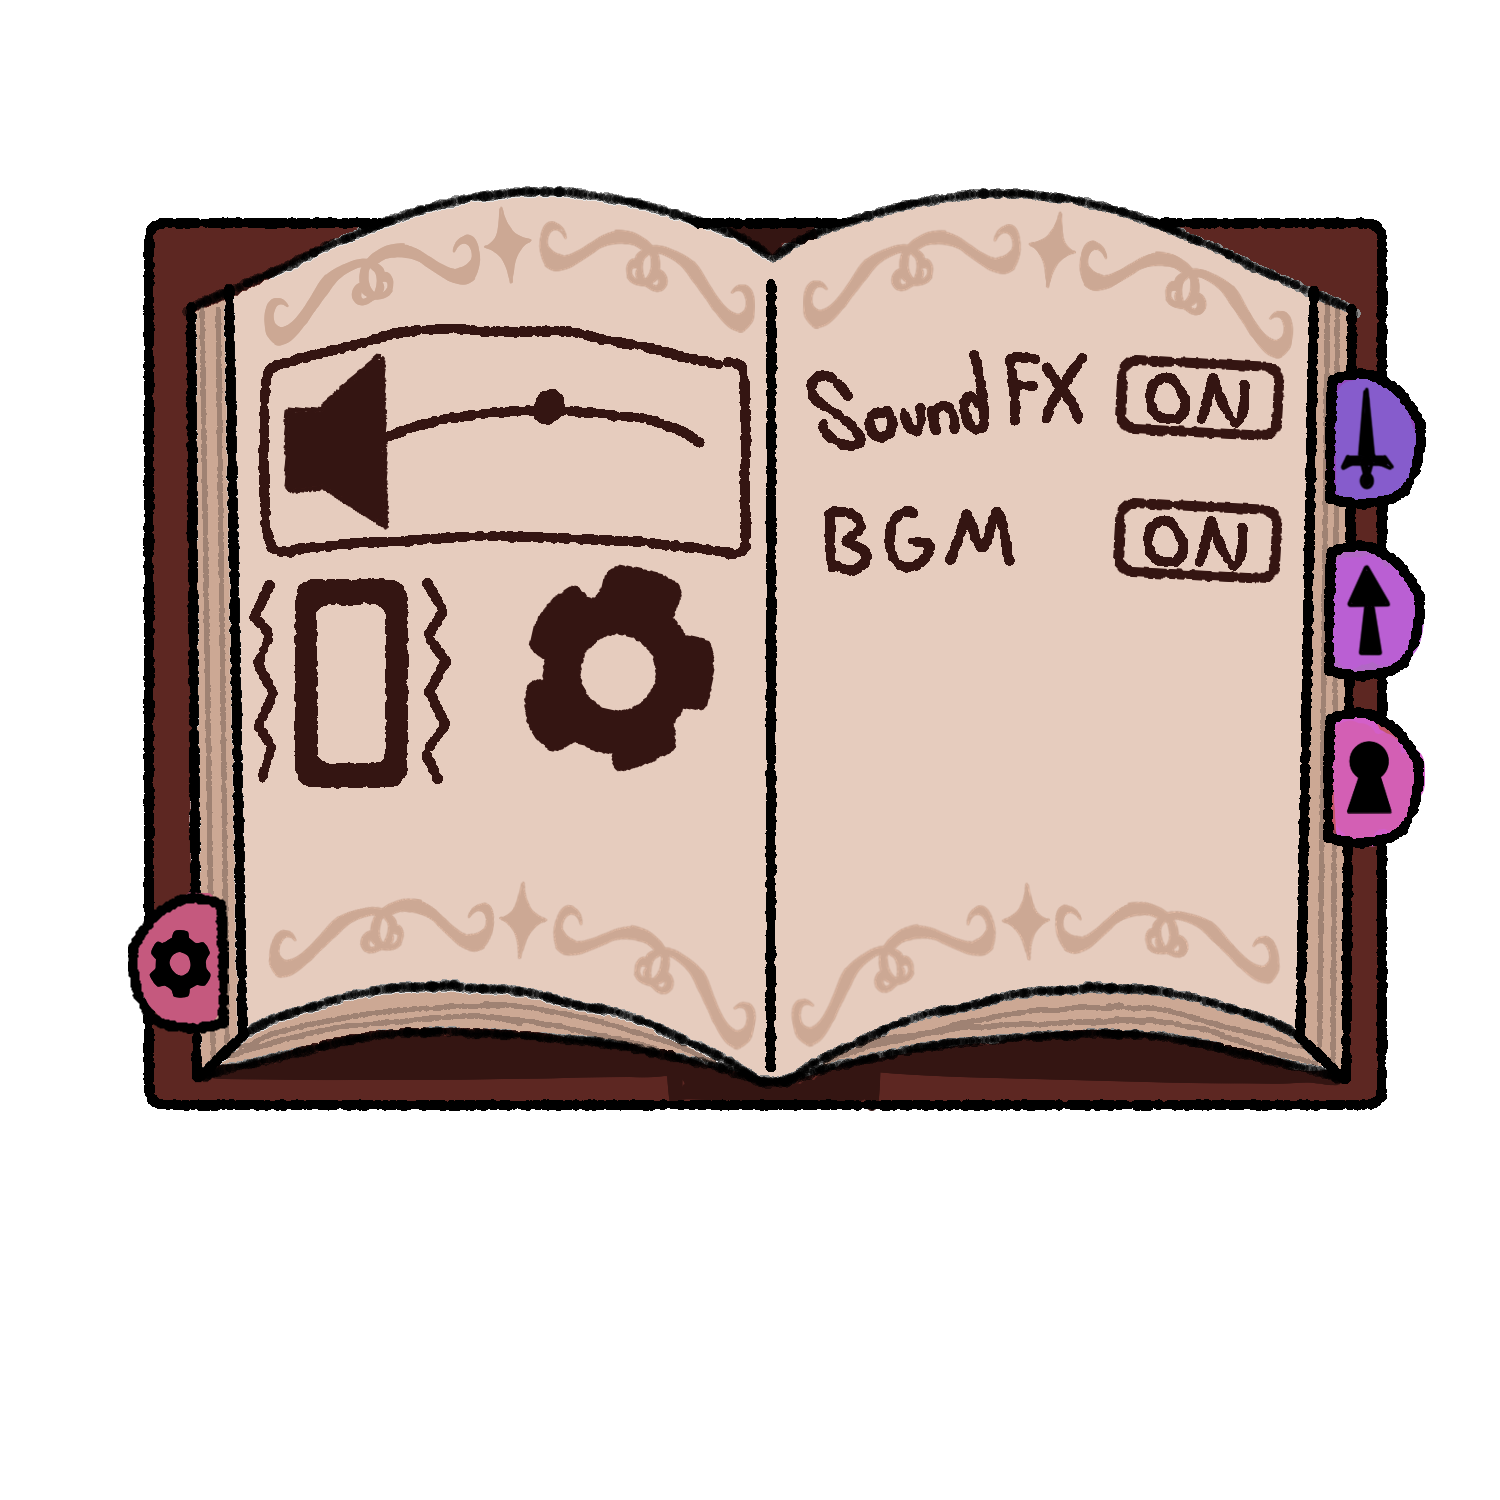 Sound FX ON
BGM ON